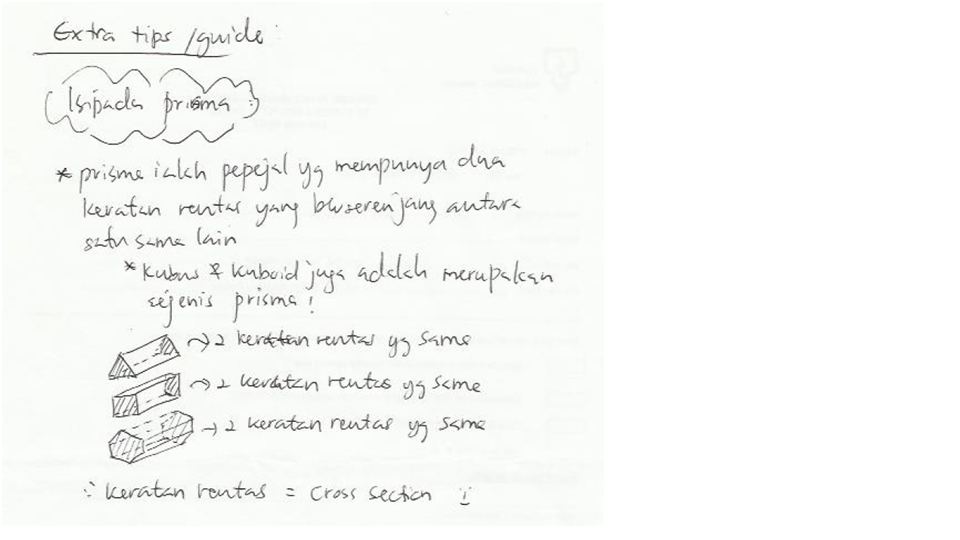 Extra tips/guide:
Isipada prisma :
* prisma ialah pepejal yg mempunya dua
keratan rentas yang berserenjang antara
satu sama lain
* kubus & kuboid juga adalah merupakan
sejenis prisma!
→ 2 keratan rentas yg sama
→ 2 keratan rentas yg sama
→ 2 keratan rentas yg sama
∴ keratan rentas = cross section